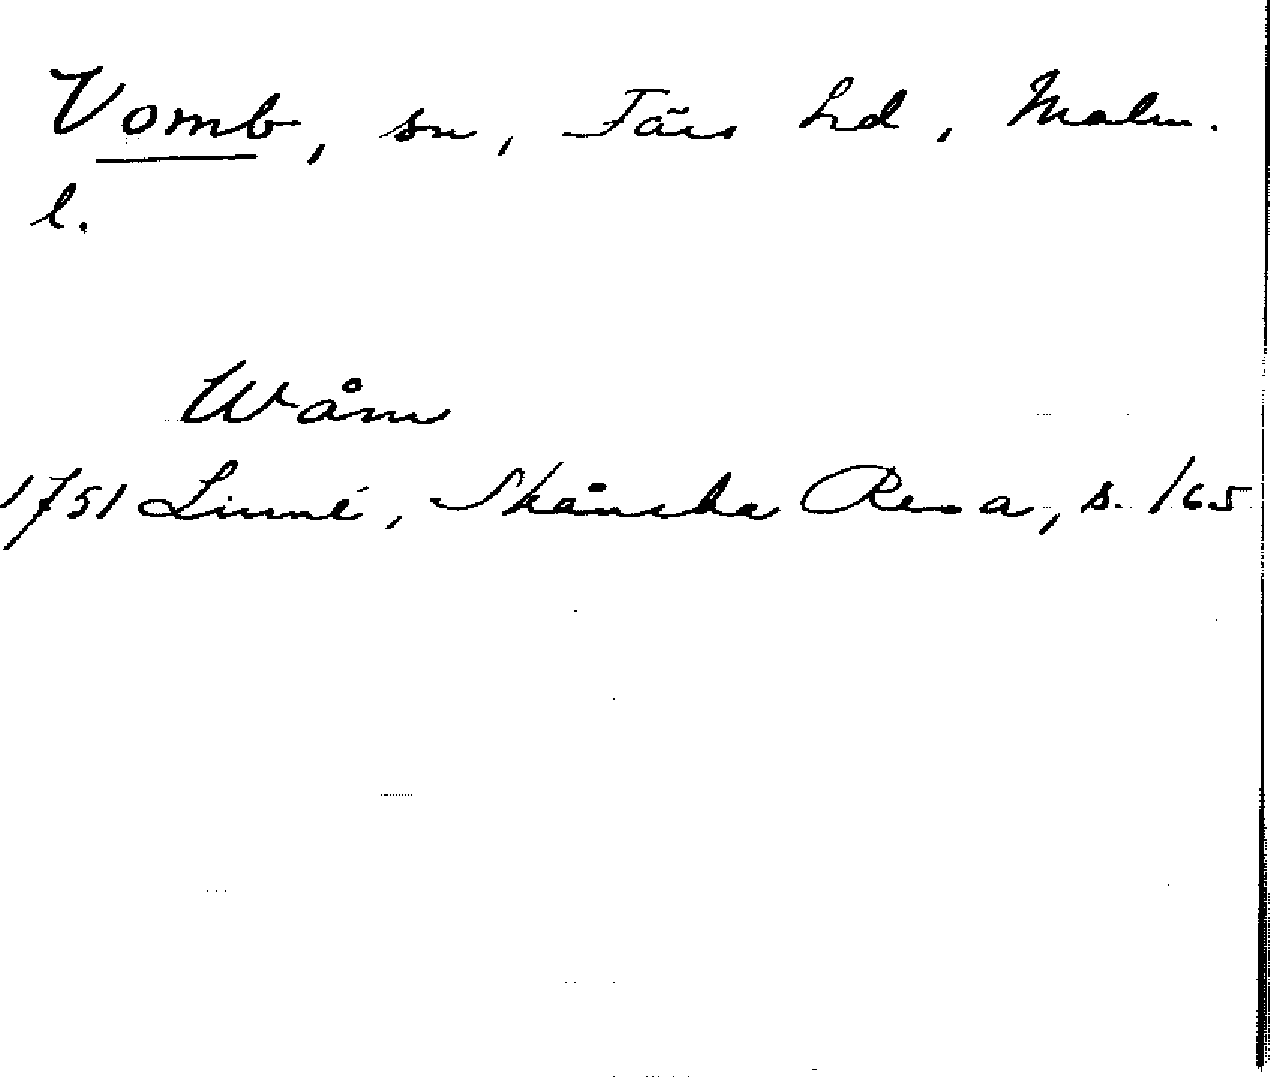 Vomb, sn, Färs hd, Malm.
l.
Wåm
1751 Linné, Skånska Resa, s. 165